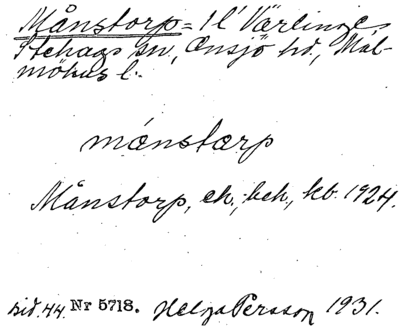 Månstorp = 1 l' Värlinge,
Stehags sn, Onsjö hd, Mal-
möhus l.
månstorp
Månstorp, eh., beh., kb. 1924.
sid. 44. Nr 5718. Helga Persson 1931.